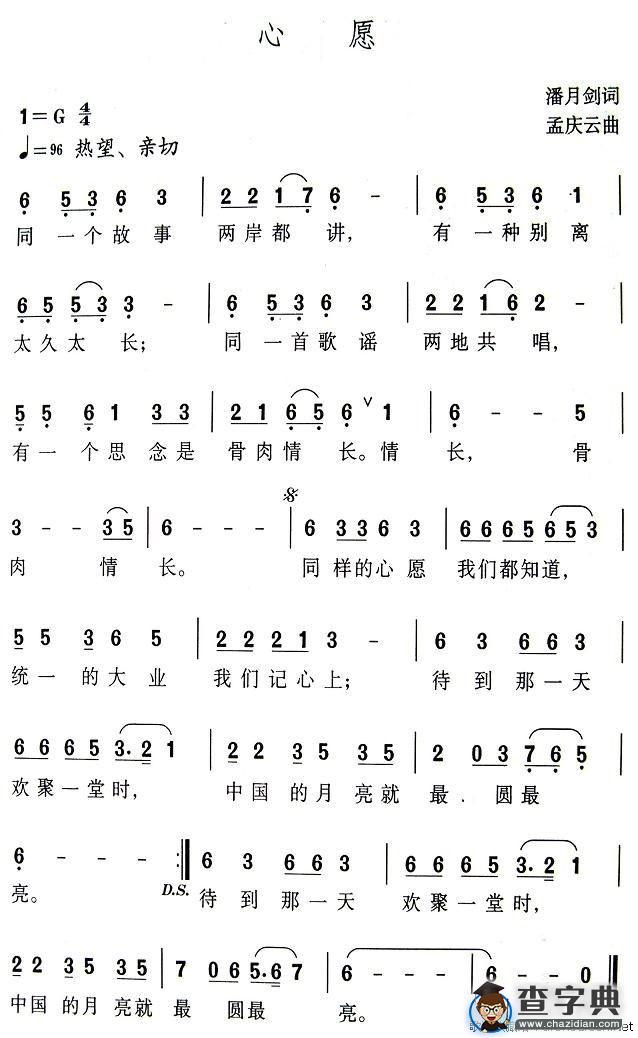 心 愿
潘月剑词
1=G 4/4
孟庆云曲
♩=96 热望、亲切
6 5 3 6 3 | 2 2 1 7 6 - | 6 5 3 6 1
同 一 个 故 事 两 岸 都 讲， 有 一 种 别 离
6 5 5 3 3 - | 6 5 3 6 3 | 2 2 1 6 2 -
太 久 太 长； 同 一 首 歌 谣 两 地 共 唱，
5 5 6 1 3 3 | 2 1 6 5 6 ∨ 1 | 6 - - 5
有 一 个 思 念 是 骨 肉 情 长。情 长， 骨
3 - - 3 5 | 6 - - - | 6 3 3 6 3 | 6 6 6 5 6 5 3
肉 情 长。 同 样 的 心 愿 我 们 都 知 道，
5 5 3 6 5 | 2 2 2 1 3 - | 6 3 6 6 3
统 一 的 大 业 我 们 记 心 上； 待 到 那 一 天
6 6 6 5 3. 2 1 | 2 2 3 5 3 5 | 2 0 3 7 6 5
欢 聚 一 堂 时， 中 国 的 月 亮 就 最 . 圆 最
6 - - - :| 6 3 6 6 3 | 6 6 6 5 3. 2 1
亮。 D.S. 待 到 那 一 天 欢 聚 一 堂 时，
2 2 3 5 3 5 | 7 0 6 5. 6 7 | 6 - - - | 6 - - 0 ‖
中 国 的 月 亮 就 最 圆 最 亮。
查字典
www.chazidian.com